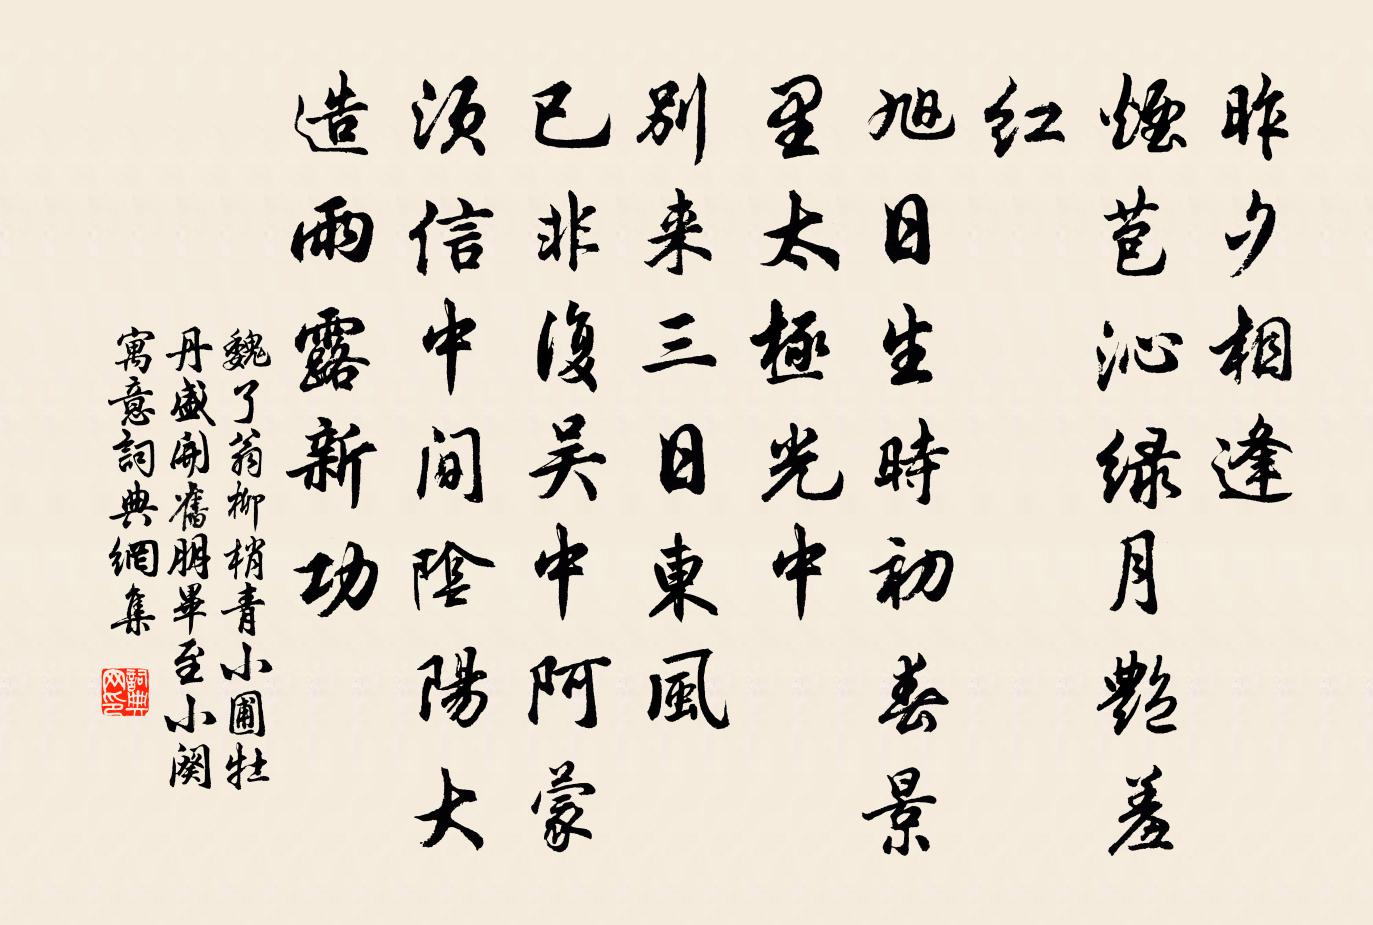 昨夕相逢
煙苞沁绿月艷羞
红
旭日生時初春景
里太極光中
別来三日東風
已非復吴中阿蒙
須信中間陰陽大
造雨露新功
魏了翁柳梢青小圃牡
丹盛開舊朋畢至小闋
寓意詞典網集
詞典
网印